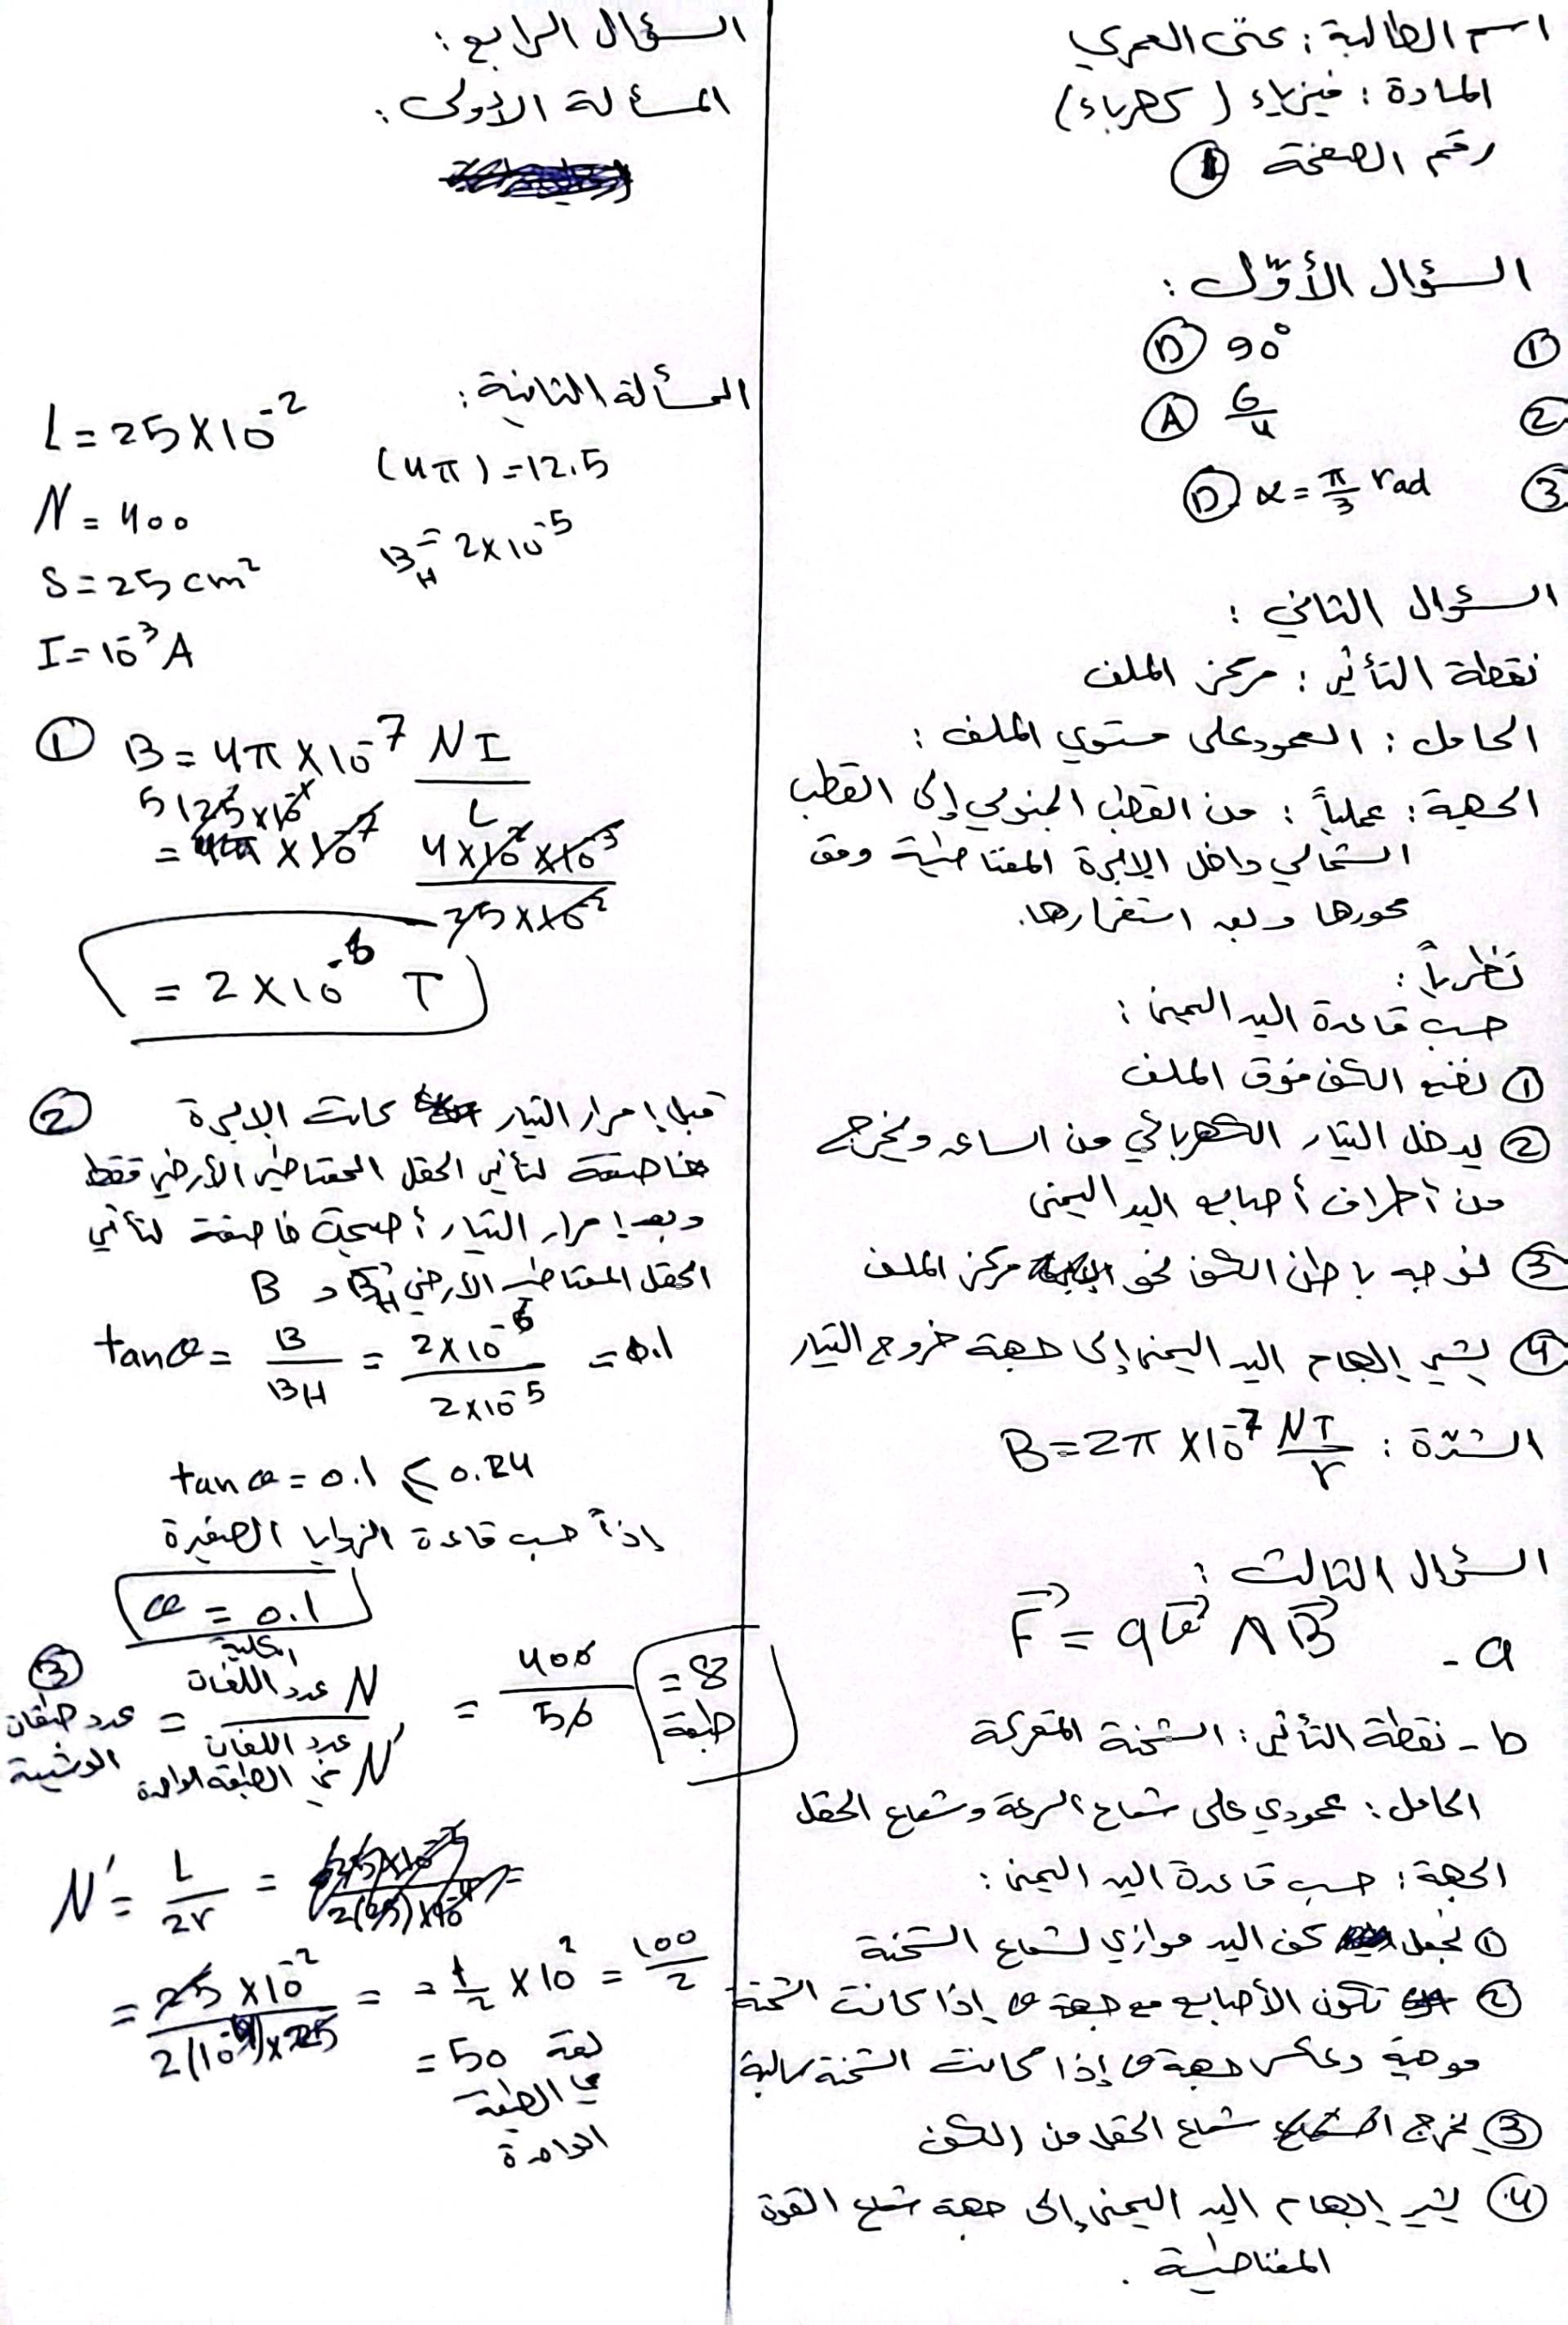 اسم الطالبة : منى العمري
المادة : فيزياء ( كهرباء )
رقم الصفحة ①
السؤال الأوّل :
① 90° Ⓓ
② G/4 Ⓐ
③ α = π/3 rad Ⓓ
السؤال الثاني :
نقطة التأثير : مركز الملف
الحامل : العمود على مستوي الملف :
الجهة : عملياً : من القطب الجنوبي إلى القطب
الشمالي داخل الإبرة المغناطيسية وفق
محورها وبعد استقرارها.
نظرياً :
حسب قاعدة اليد اليمنى :
① نضع الكف فوق الملف
② يدخل التيار الكهربائي من الساعد ويخرج
من أطراف أصابع اليد اليمنى
③ نوجه باطن الكف نحو مركز الملف
④ يشير إبهام اليد اليمنى إلى جهة خروج التيار
الشدّة : B = 2π × 10⁻⁷ NI/r
السؤال الثالث :
a - F⃗ = qv⃗ Λ B⃗
b - نقطة التأثير : الشحنة المتحركة
الحامل : عمودي على شعاع السرعة وشعاع الحقل
الجهة : حسب قاعدة اليد اليمنى :
① نجعل كف اليد موازي لشعاع الشحنة
② تكون الأصابع مع جهة v إذا كانت الشحنة
موجبة وعكس جهة v إذا كانت الشحنة سالبة
③ يخرج شعاع الحقل من الكف
④ يشير إبهام اليد اليمنى إلى جهة شعاع القوة
المغناطيسية .
السؤال الرابع :
المسألة الأولى :
المسألة الثانية :
L = 25 × 10⁻²
(4π) = 12.5
N = 400
B_H = 2 × 10⁻⁵
S = 25 cm²
I = 10⁻³ A
① B = 4π × 10⁻⁷ NI/L
= 125 × 10⁻⁷ 4 × 10² × 10⁻³ / 25 × 10⁻²
= 2 × 10⁻⁶ T
② قبل إمرار التيار كانت الإبرة
خاضعة لتأثير الحقل المغناطيسي الأرضي فقط
وبعد إمرار التيار أصبحت خاضعة لتأثير
الحقل المغناطيسي الأرضي B_H و B
tan θ = B/B_H = 2 × 10⁻⁶ / 2 × 10⁻⁵ = 0.1
tan θ = 0.1 ≤ 0.24
إذاً حسب قاعدة الزوايا الصغيرة
θ = 0.1
③ عدد طبقات الوشيعة = N عدد اللفات الكلية / N' عدد اللفات في الطبقة الواحدة = 400/50 = 8 طبقة
N' = L/2r =
= 25 × 10⁻² / 2(10⁻⁴) × 25 = = 1/2 × 10² = 100/2
= 50 لفة
في الطبقة
الواحدة